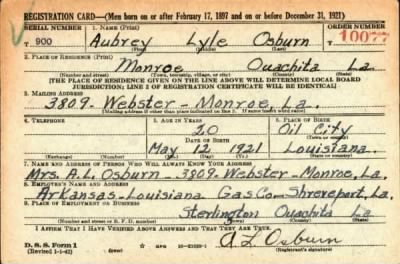 REGISTRATION CARD—(Men born on or after February 17, 1897 and on or before December 31, 1921)
SERIAL NUMBER 1. NAME (Print) ORDER NUMBER
T 900 Aubrey Lyle Osburn 10077
(First) (Middle) (Last)
2. PLACE OF RESIDENCE (Print)
Monroe Ouachita La
(Number and street) (Town, township, village, or city) (County) (State)
[THE PLACE OF RESIDENCE GIVEN ON THE LINE ABOVE WILL DETERMINE LOCAL BOARD
JURISDICTION; LINE 2 OF REGISTRATION CERTIFICATE WILL BE IDENTICAL]
3. MAILING ADDRESS
3809-Webster-Monroe, La.
4. TELEPHONE 5. AGE IN YEARS 6. PLACE OF BIRTH
20 Oil City
DATE OF BIRTH
May 12 1921 Louisiana.
(Exchange) (Number) (Mo.) (Day) (Yr.)
7. NAME AND ADDRESS OF PERSON WHO WILL ALWAYS KNOW YOUR ADDRESS
Mrs. A.L. Osburn-3809-Webster-Monroe, La.
8. EMPLOYER'S NAME AND ADDRESS
Arkansas-Louisiana Gas Co-Shreveport, La.
9. PLACE OF EMPLOYMENT OR BUSINESS
Sterlington Ouachita La
(Number and street or R. F. D. number) (Town) (County) (State)
I AFFIRM THAT I HAVE VERIFIED ABOVE ANSWERS AND THAT THEY ARE TRUE.
D. S. S. Form 1
(Revised 1-1-42)
A L Osburn